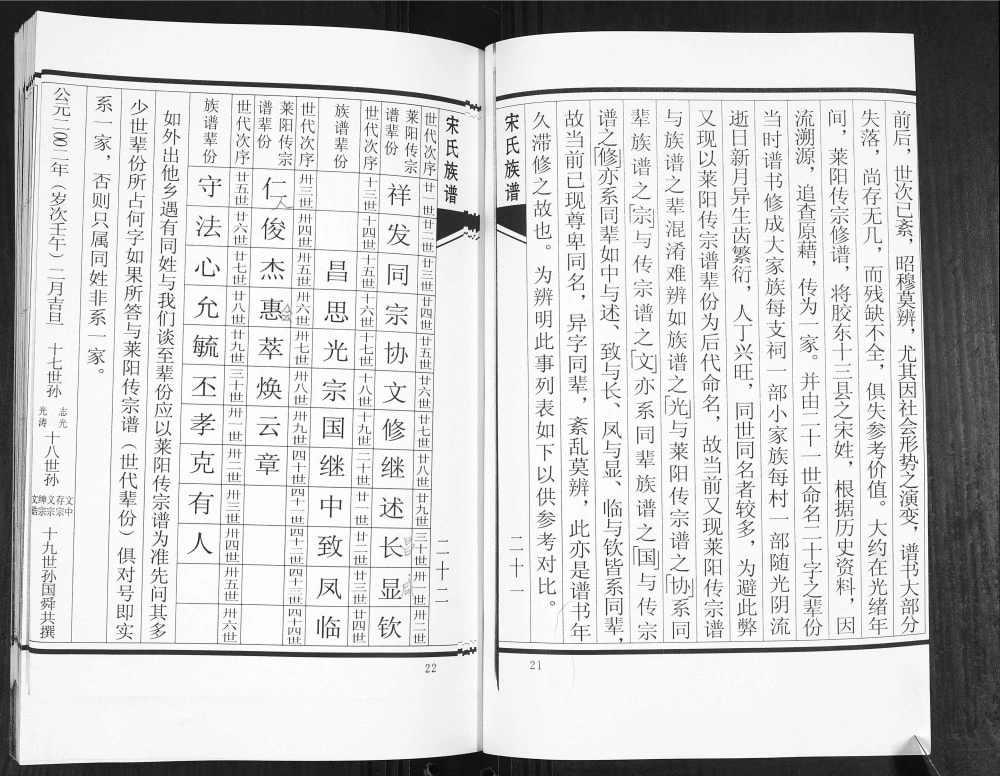 前后，世次已紊，昭穆莫辨，尤其因社会形势之演变，谱书大部分
失落，尚存无几，而残缺不全，俱失参考价值。大约在光绪年
间，莱阳传宗修谱，将胶东十三县之宋姓，根据历史资料，因
流溯源，追查原藉，传为一家。并由二十一世命名二十字之辈份
当时谱书修成大家族每支祠一部小家族每村一部随光阴流
逝日新月异生齿繁衍，人丁兴旺，同世同名者较多，为避此弊
又现以莱阳传宗谱辈份为后代命名，故当前又现莱阳传宗谱
与族谱之辈混淆难辨如族谱之「光」与莱阳传宗谱之「协」系同
辈族谱之「宗」与传宗谱之「文」亦系同辈族谱之「国」与传宗
谱之「修」亦系同辈如中与述、致与长、凤与显、临与钦皆系同辈，
故当前已现尊卑同名，异字同辈，紊乱莫辨，此亦是谱书年
久滞修之故也。为辨明此事列表如下以供参考对比。
宋氏族谱
二十一
21
宋氏族谱
二十二
世代次序 廿一世 廿二世 廿三世 廿四世 廿五世 廿六世 廿七世 廿八世 廿九世 三十世 卅一世 卅二世
莱阳传宗谱辈份 祥 发 同 宗 协 文 修 继 述 长 显 钦
世代次序 十三世 十四世 十五世 十六世 十七世 十八世 十九世 二十世 廿一世 廿二世 廿三世 廿四世
族谱辈份 昌 思 光 宗 国 继 中 致 凤 临
世代次序 卅三世 卅四世 卅五世 卅六世 卅七世 卅八世 卅九世 四十世 四十一世 四十二世 四十三世 四十四世
莱阳传宗谱辈份 仁 俊 杰 惠 萃 焕 云 章
世代次序 廿五世 廿六世 廿七世 廿八世 廿九世 三十世 卅一世 卅二世 卅三世 卅四世 卅五世 卅六世
族谱辈份 守 法 心 允 毓 丕 孝 克 有 人
如外出他乡遇有同姓与我们谈至辈份应以莱阳传宗谱为准先问其多
少世辈份所占何字如果所答与莱阳传宗谱（世代辈份）俱对号即实
系一家，否则只属同姓非系一家。
公元二〇〇二年（岁次壬午）二月吉旦 十七世孙 志光 光涛 十八世孙 文中 存宗 义宗 绅宗 十九世孙国舜共撰
22